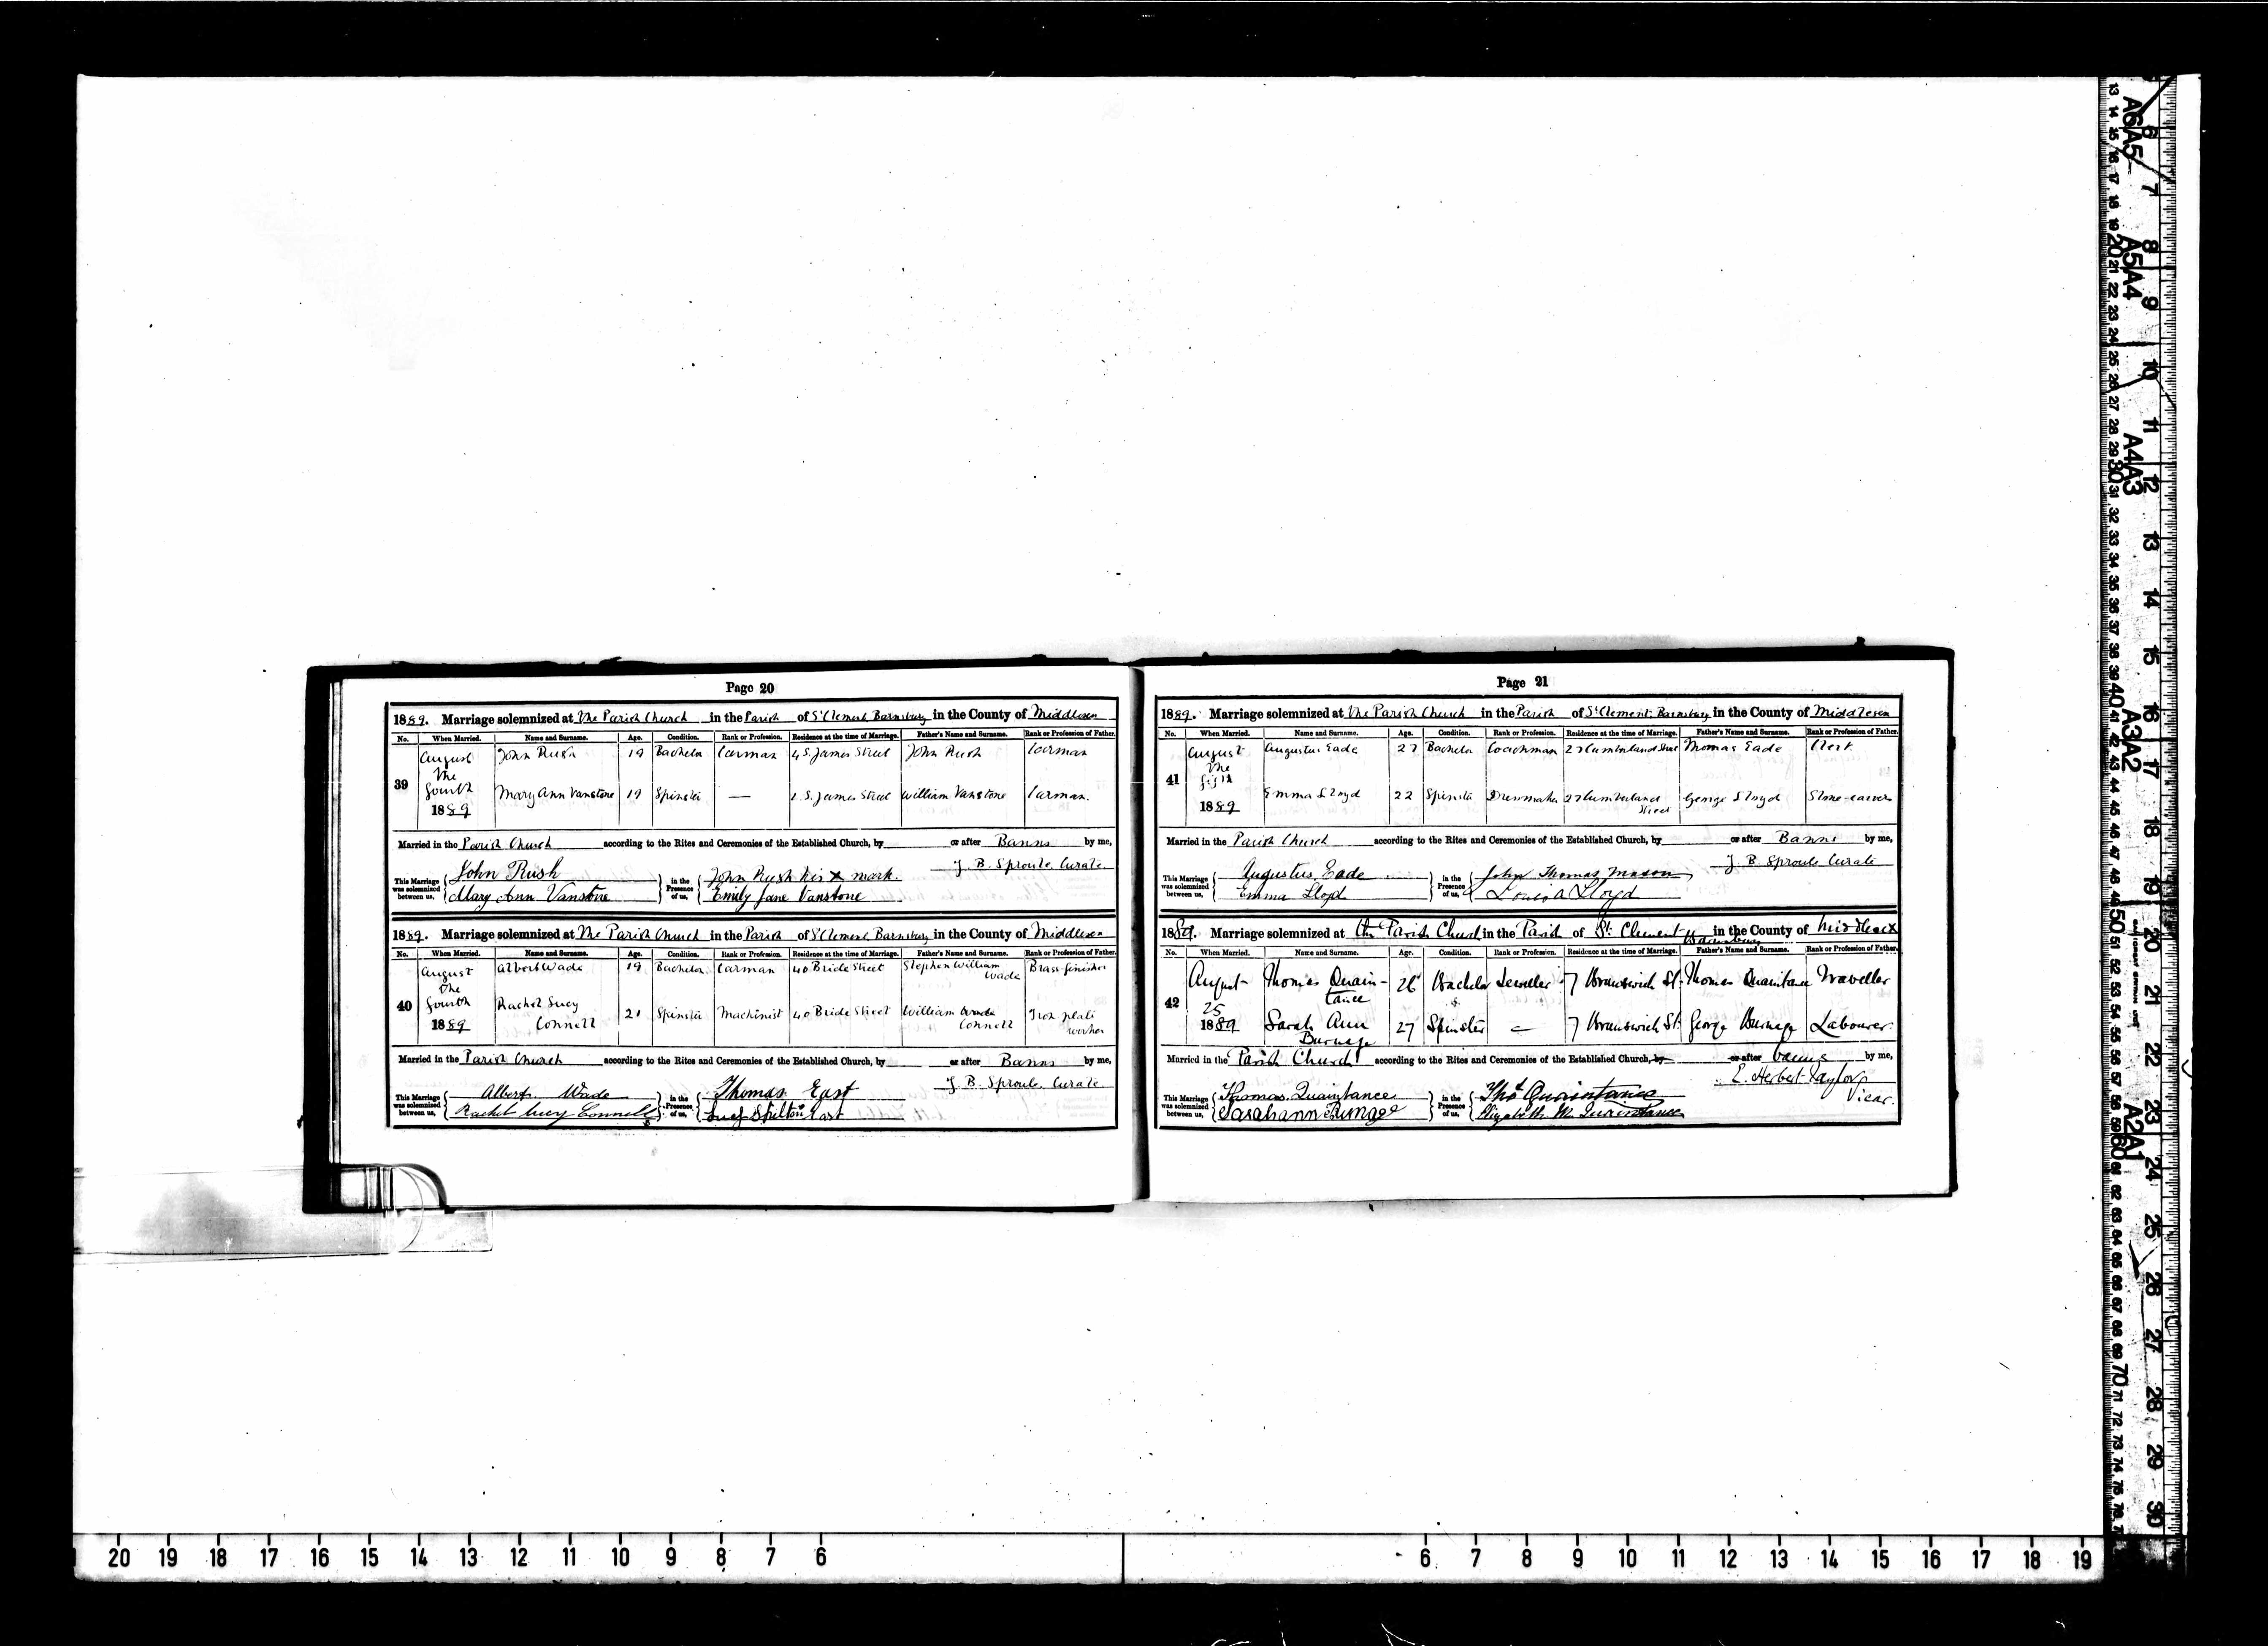 Page 20
1889. Marriage solemnized at The Parish Church in the Parish of St Clement Barnsbury in the County of Middlesex
No. When Married. Name and Surname. Age. Condition. Rank or Profession. Residence at the time of Marriage. Father's Name and Surname. Rank or Profession of Father.
39 August the fourth 1889 John Rush 19 Bachelor Carman 4 S. James Street John Rush Carman
Mary Ann Vanstone 19 Spinster — S. James Street William Vanstone Carman.
Married in the Parish Church according to the Rites and Ceremonies of the Established Church, by or after Banns by me,
J. B. Sproule. Curate
This Marriage was solemnized between us, John Rush in the Presence of us, John Rush his X mark.
Mary Ann Vanstone Emily Jane Vanstone
1889. Marriage solemnized at The Parish Church in the Parish of St Clement Barnsbury in the County of Middlesex
No. When Married. Name and Surname. Age. Condition. Rank or Profession. Residence at the time of Marriage. Father's Name and Surname. Rank or Profession of Father.
40 August the fourth 1889 Albert Wade 19 Bachelor Carman 40 Bride Street Stephen William Wade Brass-finisher
Rachel Lucy Connell 21 Spinster Machinist 40 Bride Street William Connell Iron plate worker
Married in the Parish Church according to the Rites and Ceremonies of the Established Church, by or after Banns by me,
J. B. Sproule. Curate
This Marriage was solemnized between us, Albert Wade in the Presence of us, Thomas East
Rachel Lucy Connell Lucy East
Page 21
1889. Marriage solemnized at The Parish Church in the Parish of St Clement. Barnsbury in the County of Middlesex
No. When Married. Name and Surname. Age. Condition. Rank or Profession. Residence at the time of Marriage. Father's Name and Surname. Rank or Profession of Father.
41 August the 1889 Augustus Eade 27 Bachelor Coachman 27 Cumberland Street Thomas Eade Clerk
Emma Lloyd 22 Spinster Dressmaker 27 Cumberland Street George Lloyd Stone-carver
Married in the Parish Church according to the Rites and Ceremonies of the Established Church, by or after Banns by me,
J. B. Sproule Curate
This Marriage was solemnized between us, Augustus Eade in the Presence of us, John Thomas Mason
Emma Lloyd Louisa Lloyd
1889. Marriage solemnized at the Parish Church in the Parish of St. Clement Barnsbury in the County of Middlesex
No. When Married. Name and Surname. Age. Condition. Rank or Profession. Residence at the time of Marriage. Father's Name and Surname. Rank or Profession of Father.
42 August 25 1889 Thomas Quaintance 26 Bachelor Jeweller 7 Brunswick St. Thomas Quaintance Traveller
Sarah Ann Burnage 27 Spinster — 7 Brunswick St. George Burnage Labourer.
Married in the Parish Church according to the Rites and Ceremonies of the Established Church, by or after banns by me,
E. Herbert Taylor Vicar.
This Marriage was solemnized between us, Thomas Quaintance in the Presence of us, Thos Quaintance
Sarah ann Burnage Elizabeth M. Quaintance